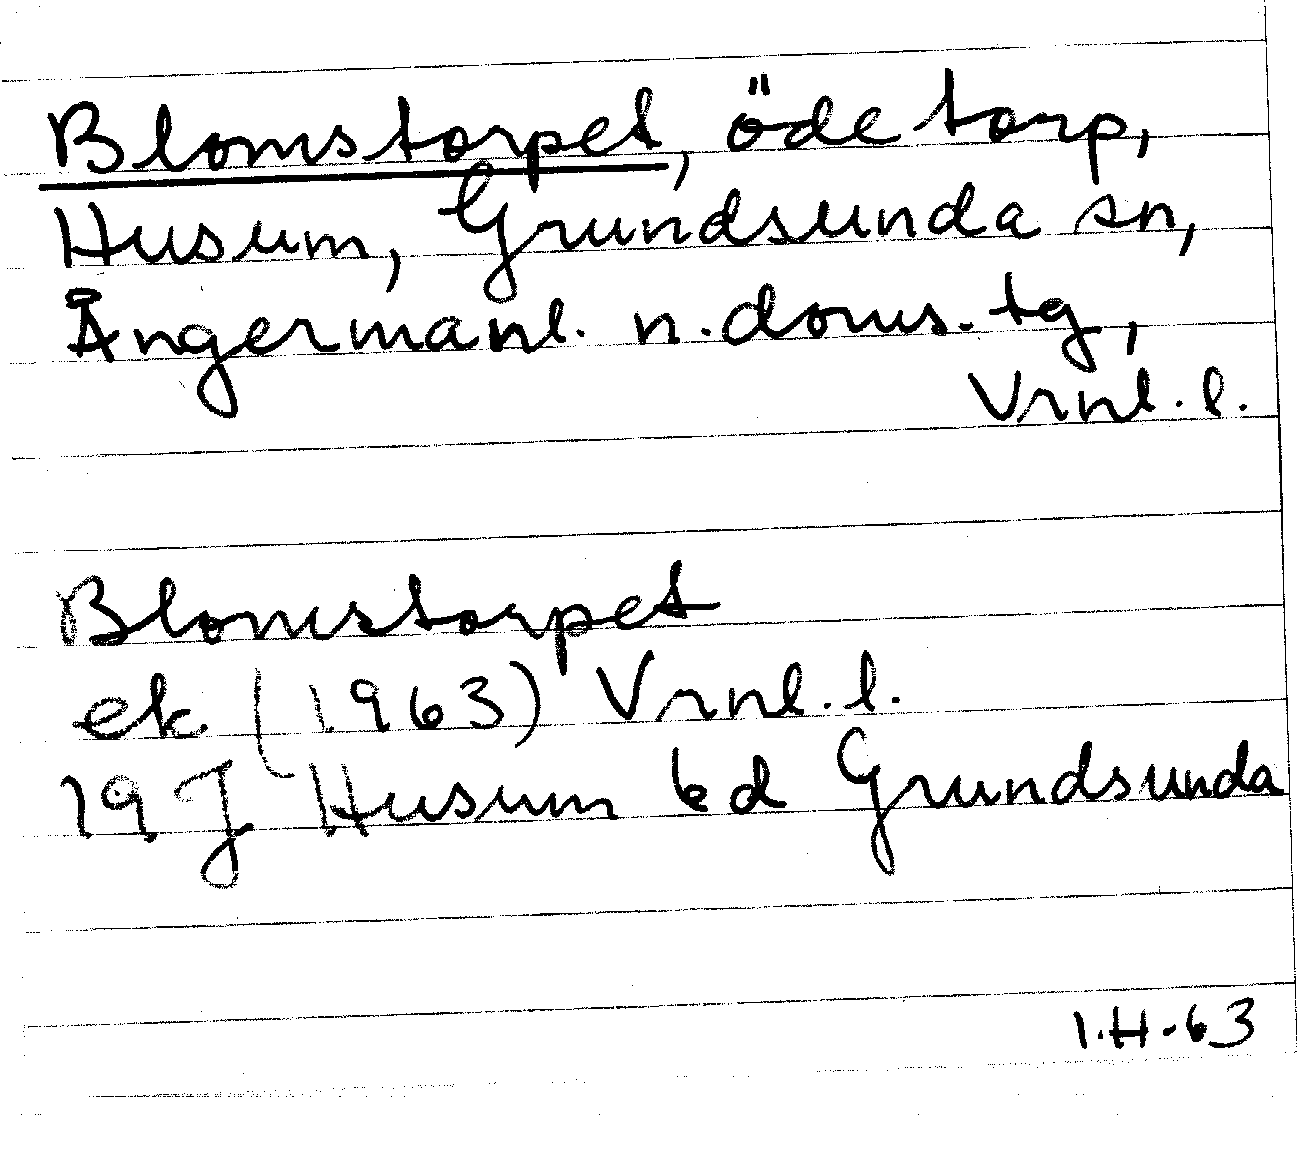 Blomstorpet, öde torp,
Husum, Grundsunda sn,
Ångermanl. n. doms. tg,
Vrnl. l.
Blomstorpet
ek (1963) Vrnl. l.
19 J Husum bd Grundsunda
I.H-63